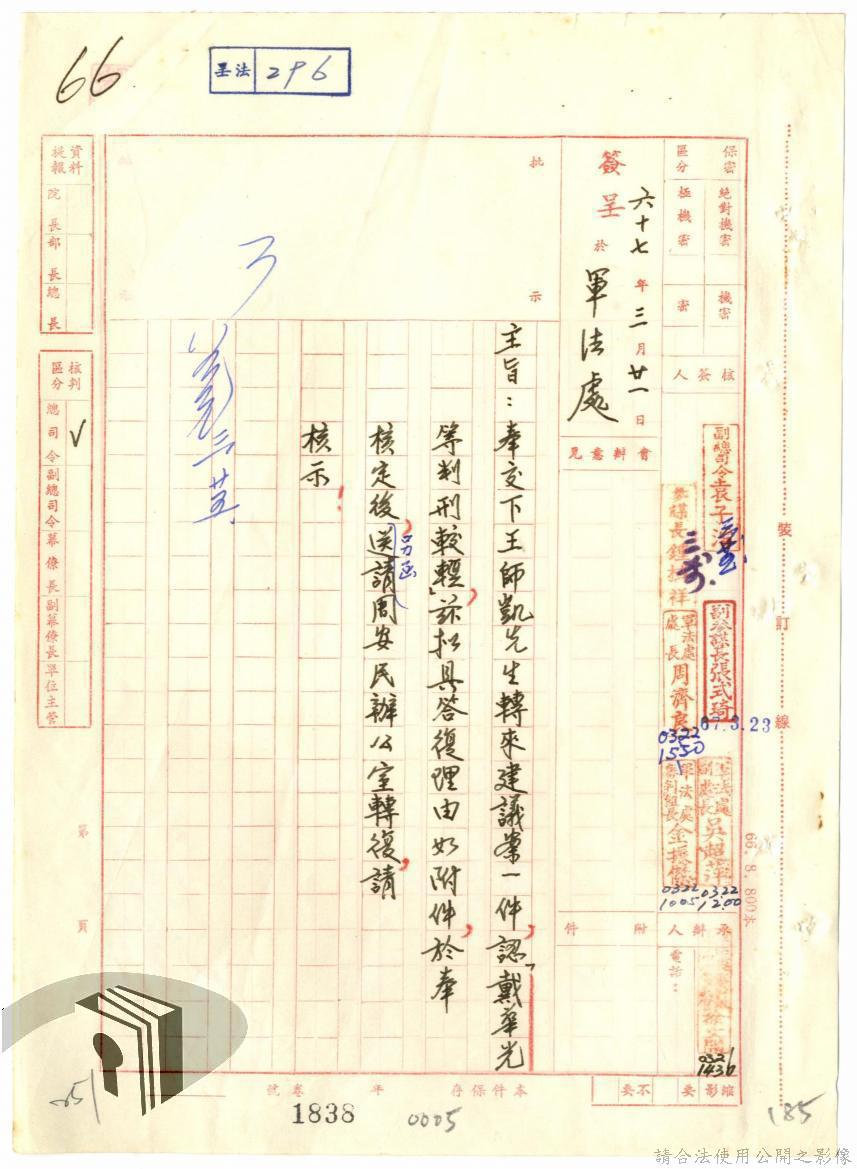 66
呈法 296
保密區分
絕對機密
極機密
機密
密
核簽人
副總司令袁子濬
參謀長鍾振祥
副參謀長張式琦
67.3.23
軍法處處長周濟良
0322
1550
軍法處副處長吳超萍
0322
1200
軍法處審判組長金振
0322
1005
承辦人
電話：
0321
1436
簽呈
六十七年三月廿一日
於軍法處
會辦意見
附件
批示
主旨：奉交下王師凱先生轉來建議案一件，認「戴華光
等判刑較輕」，茲擬具答復理由如附件，於奉
核定後，送請周安民辦公室轉復，請
另函
核示！
資料提報
院長
部長
總長
核判區分
總司令
副總司令
幕僚長
副幕僚長
單位主管
裝訂線
66.8.800本
第頁
縮影
要
不要
本件保存年
卷號
1838
0005
185
請合法使用公開之影像